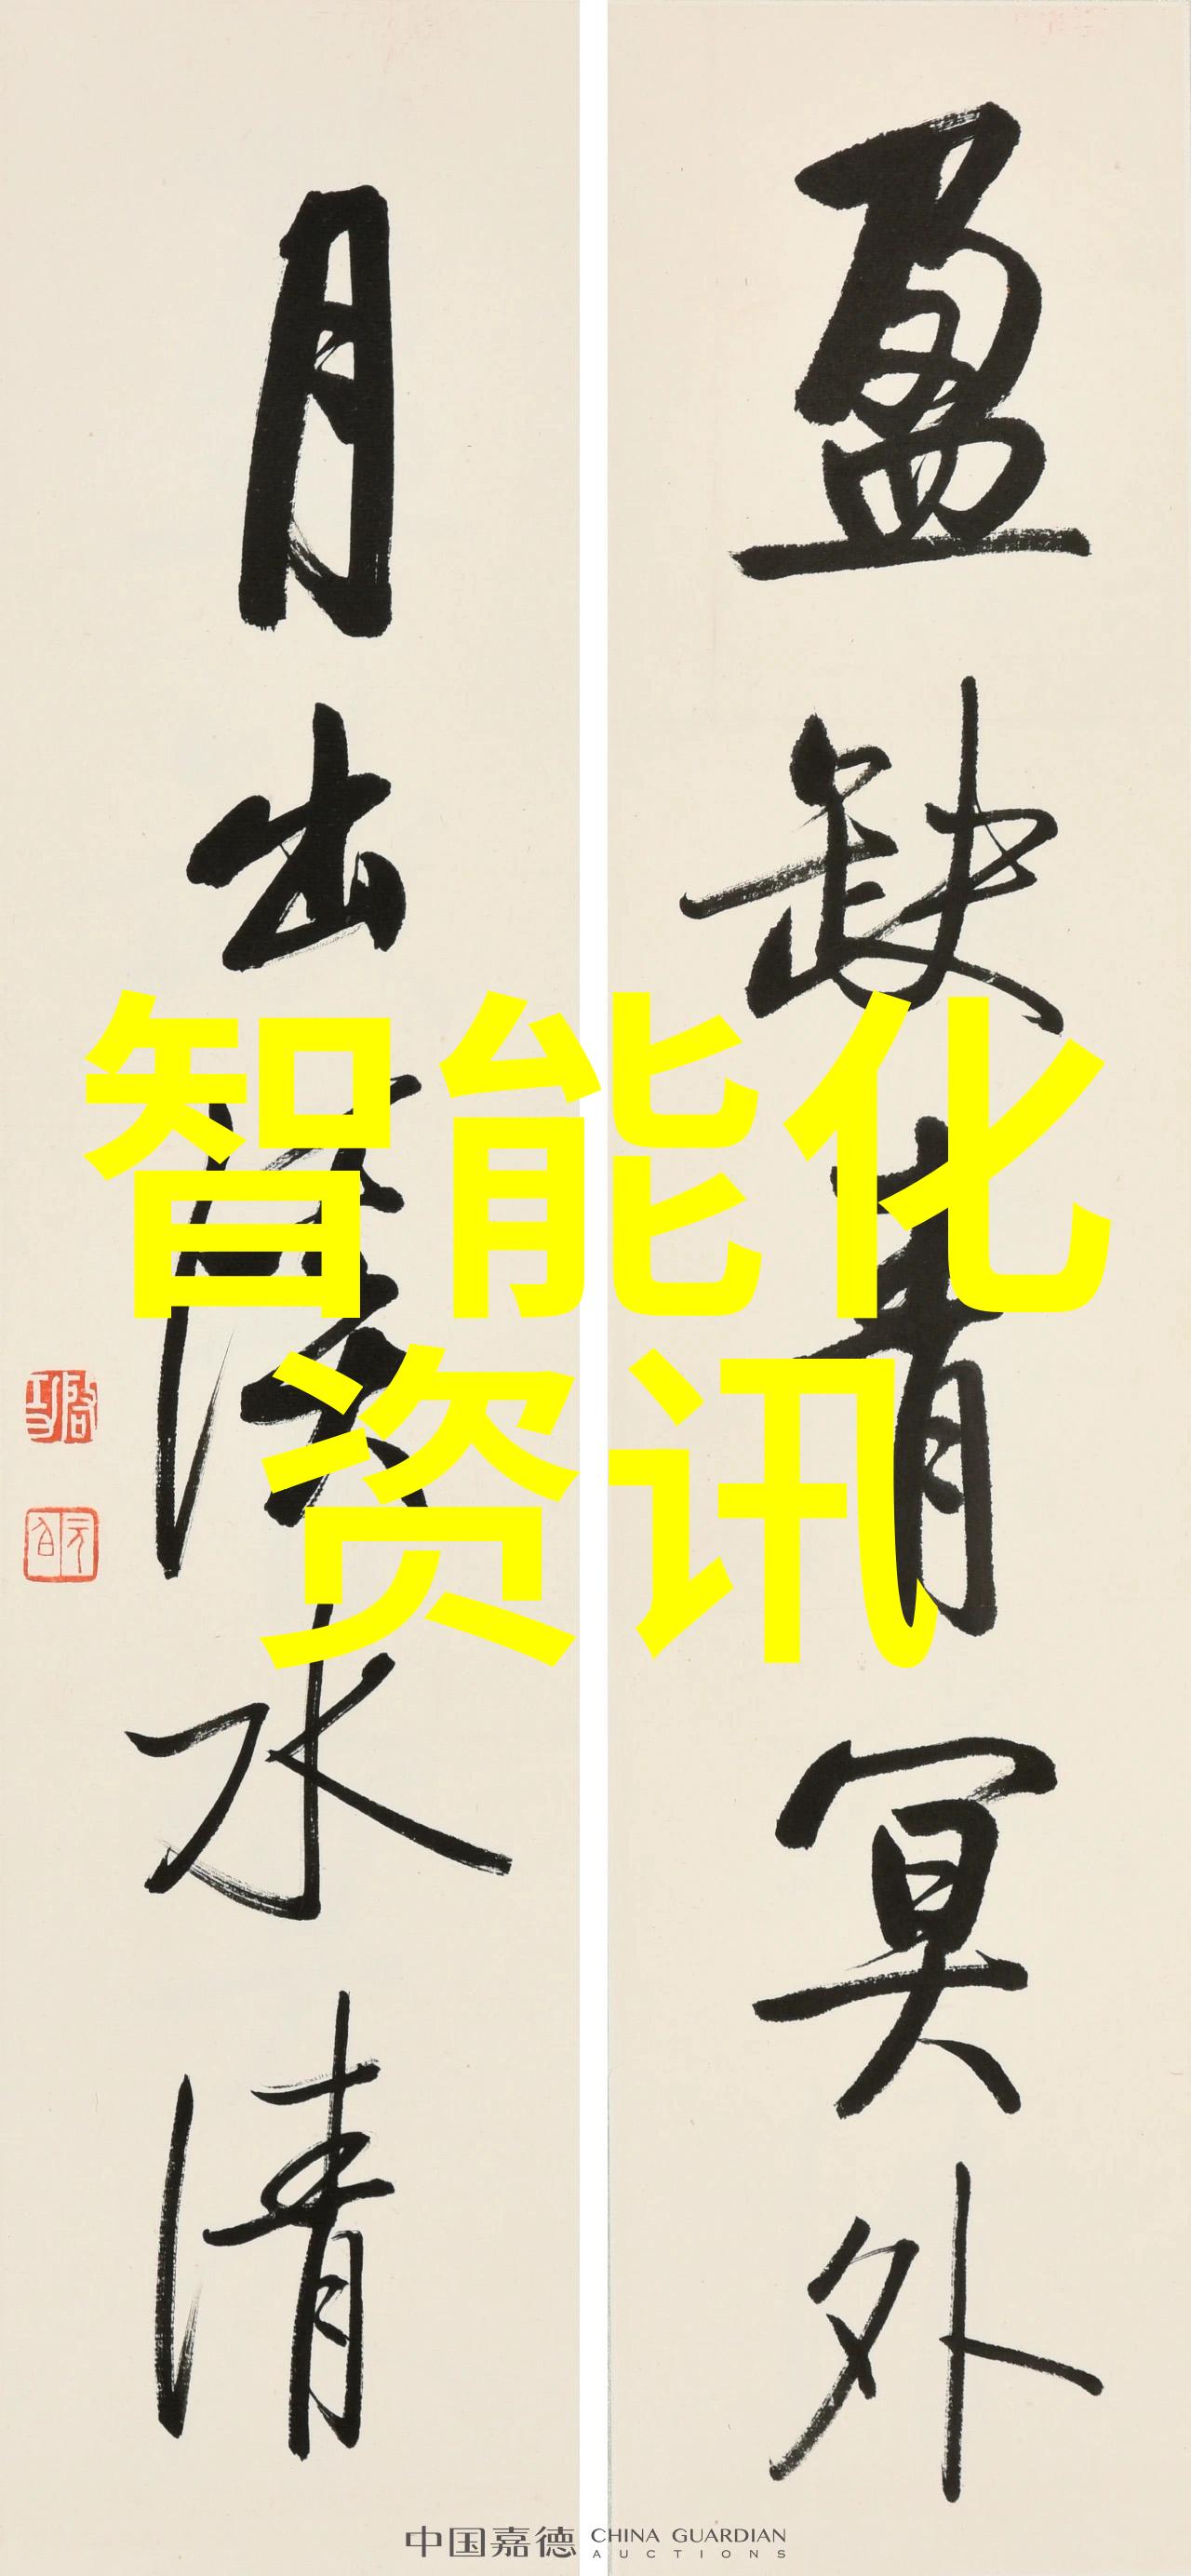 盈缺青冥外
月出
水清
智能化
资讯
启功
元白
中国嘉德 CHINA GUARDIAN
AUCTIONS